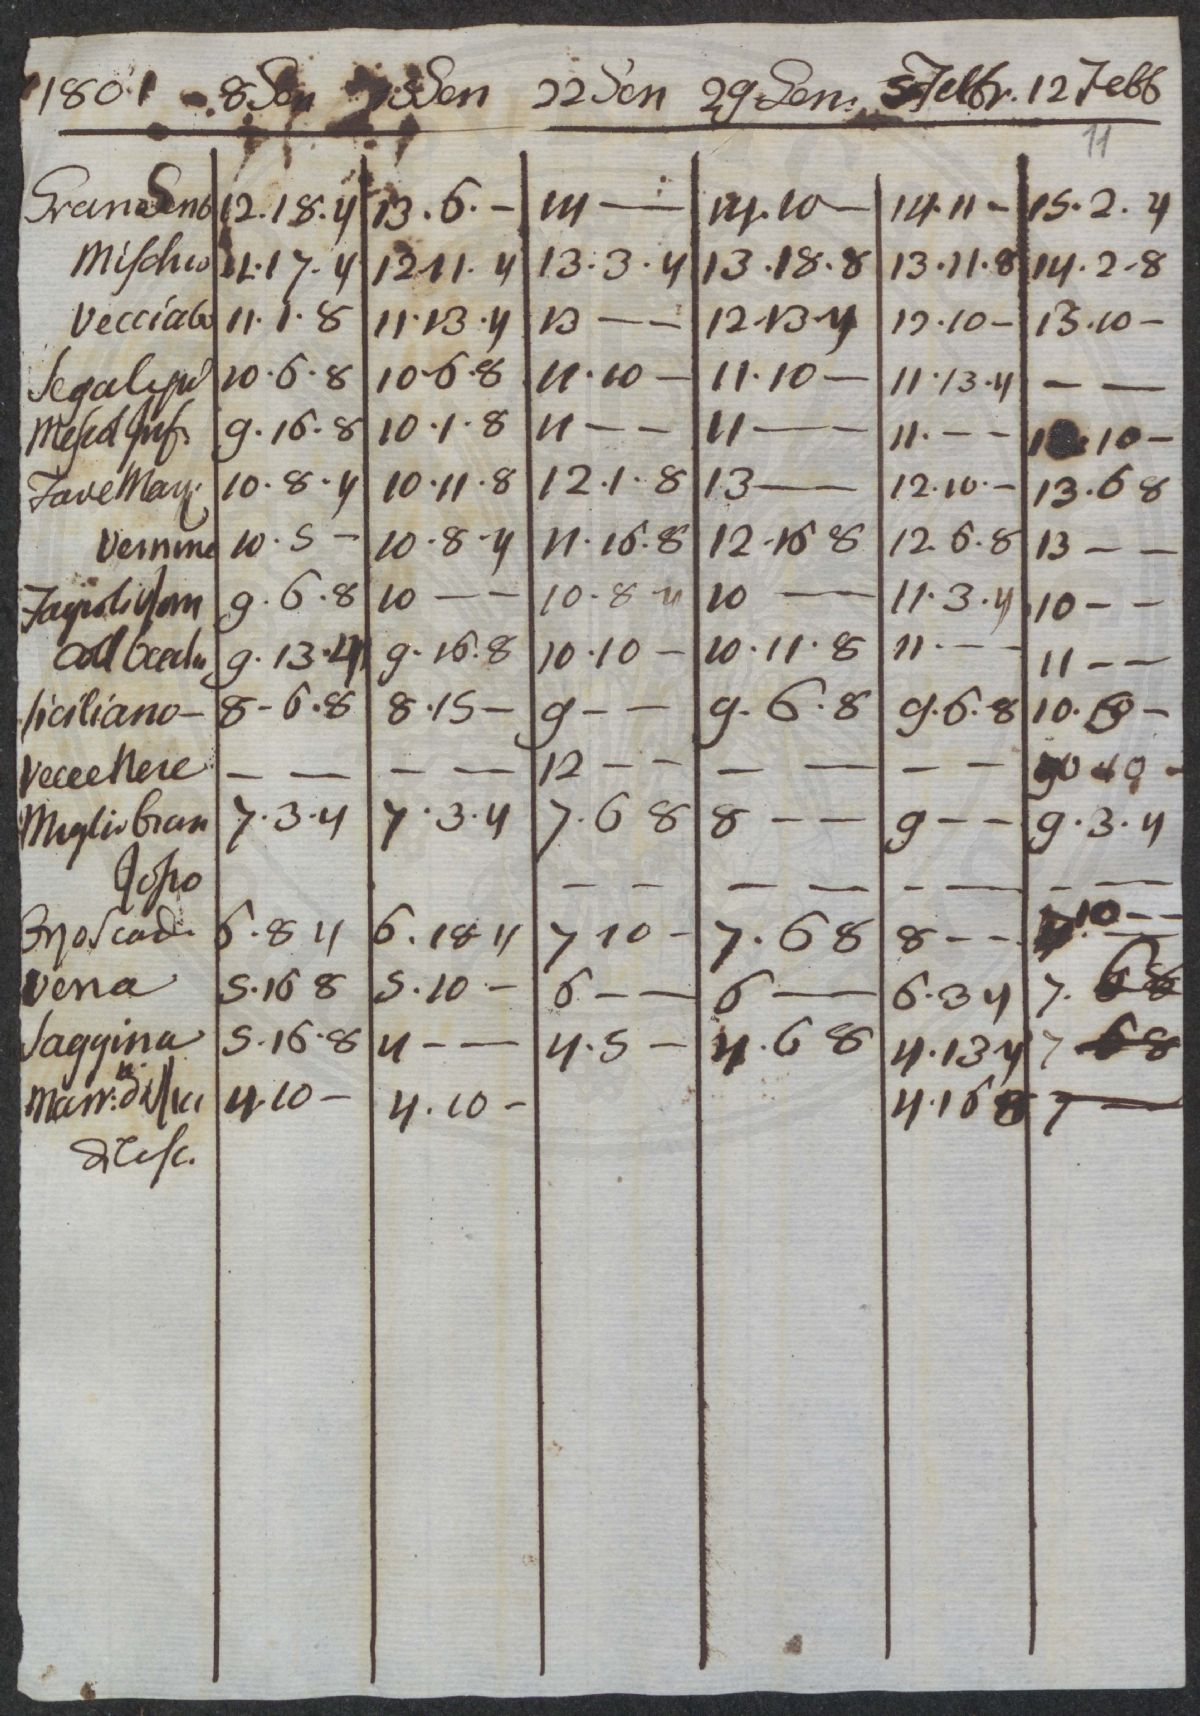 1801 8 Gen 15 Gen 22 Gen 29 Gen. 5 Febbr. 12 Febb
11
Gran Gent 12.18.4 13.6.- 14 — 14.10 — 14.11 - 15.2.4
Mischio 11.17.4 12.11.4 13.3.4 13.18.8 13.11.8 14.2.8
Vecciato 11.1.8 11.13.4 13 — — 12.13.4 12.10 - 13.10 -
Segale 10.6.8 10.6.8 11.10 — 11.10 — 11.13.4 — —
Mesc Inf. 9.16.8 10.1.8 11 — — 11 — — 11. — — 10 -
Fave Mag. 10.8.4 10.11.8 12.1.8 13 — 12.10. - 13.6 8
Vernine 10.5 - 10.8.4 11.16.8 12.16 8 12.6.8 13 — —
9.6.8 10 — — 10.8 4 10 — 11.3.4 10 — —
coll 9.13.4 9.16.8 10.10 - 10.11.8 11. — — 11 — —
Siciliano — 8-6.8 8.15 - 9 — — 9.6.8 9.6.8 10. -
Vecce Nere — — — — 12 — — — — — — 10 -
Miglio bran 7.3.4 7.3.4 7.6 8 8 — — 9 — — 9.3.4
— — — — - — - —
6.8 4 6.18 4 7 10 - 7.6 8 8 — — 10 — —
Vena 5.16 8 5.10 - 6 — — 6 — 6.3 4 7. 6 8
Saggina 5.16.8 4 — — 4.5 — 4.6 8 4.13 4 7 6 8
4.10 - 4.10 - 4.16 8 7 —